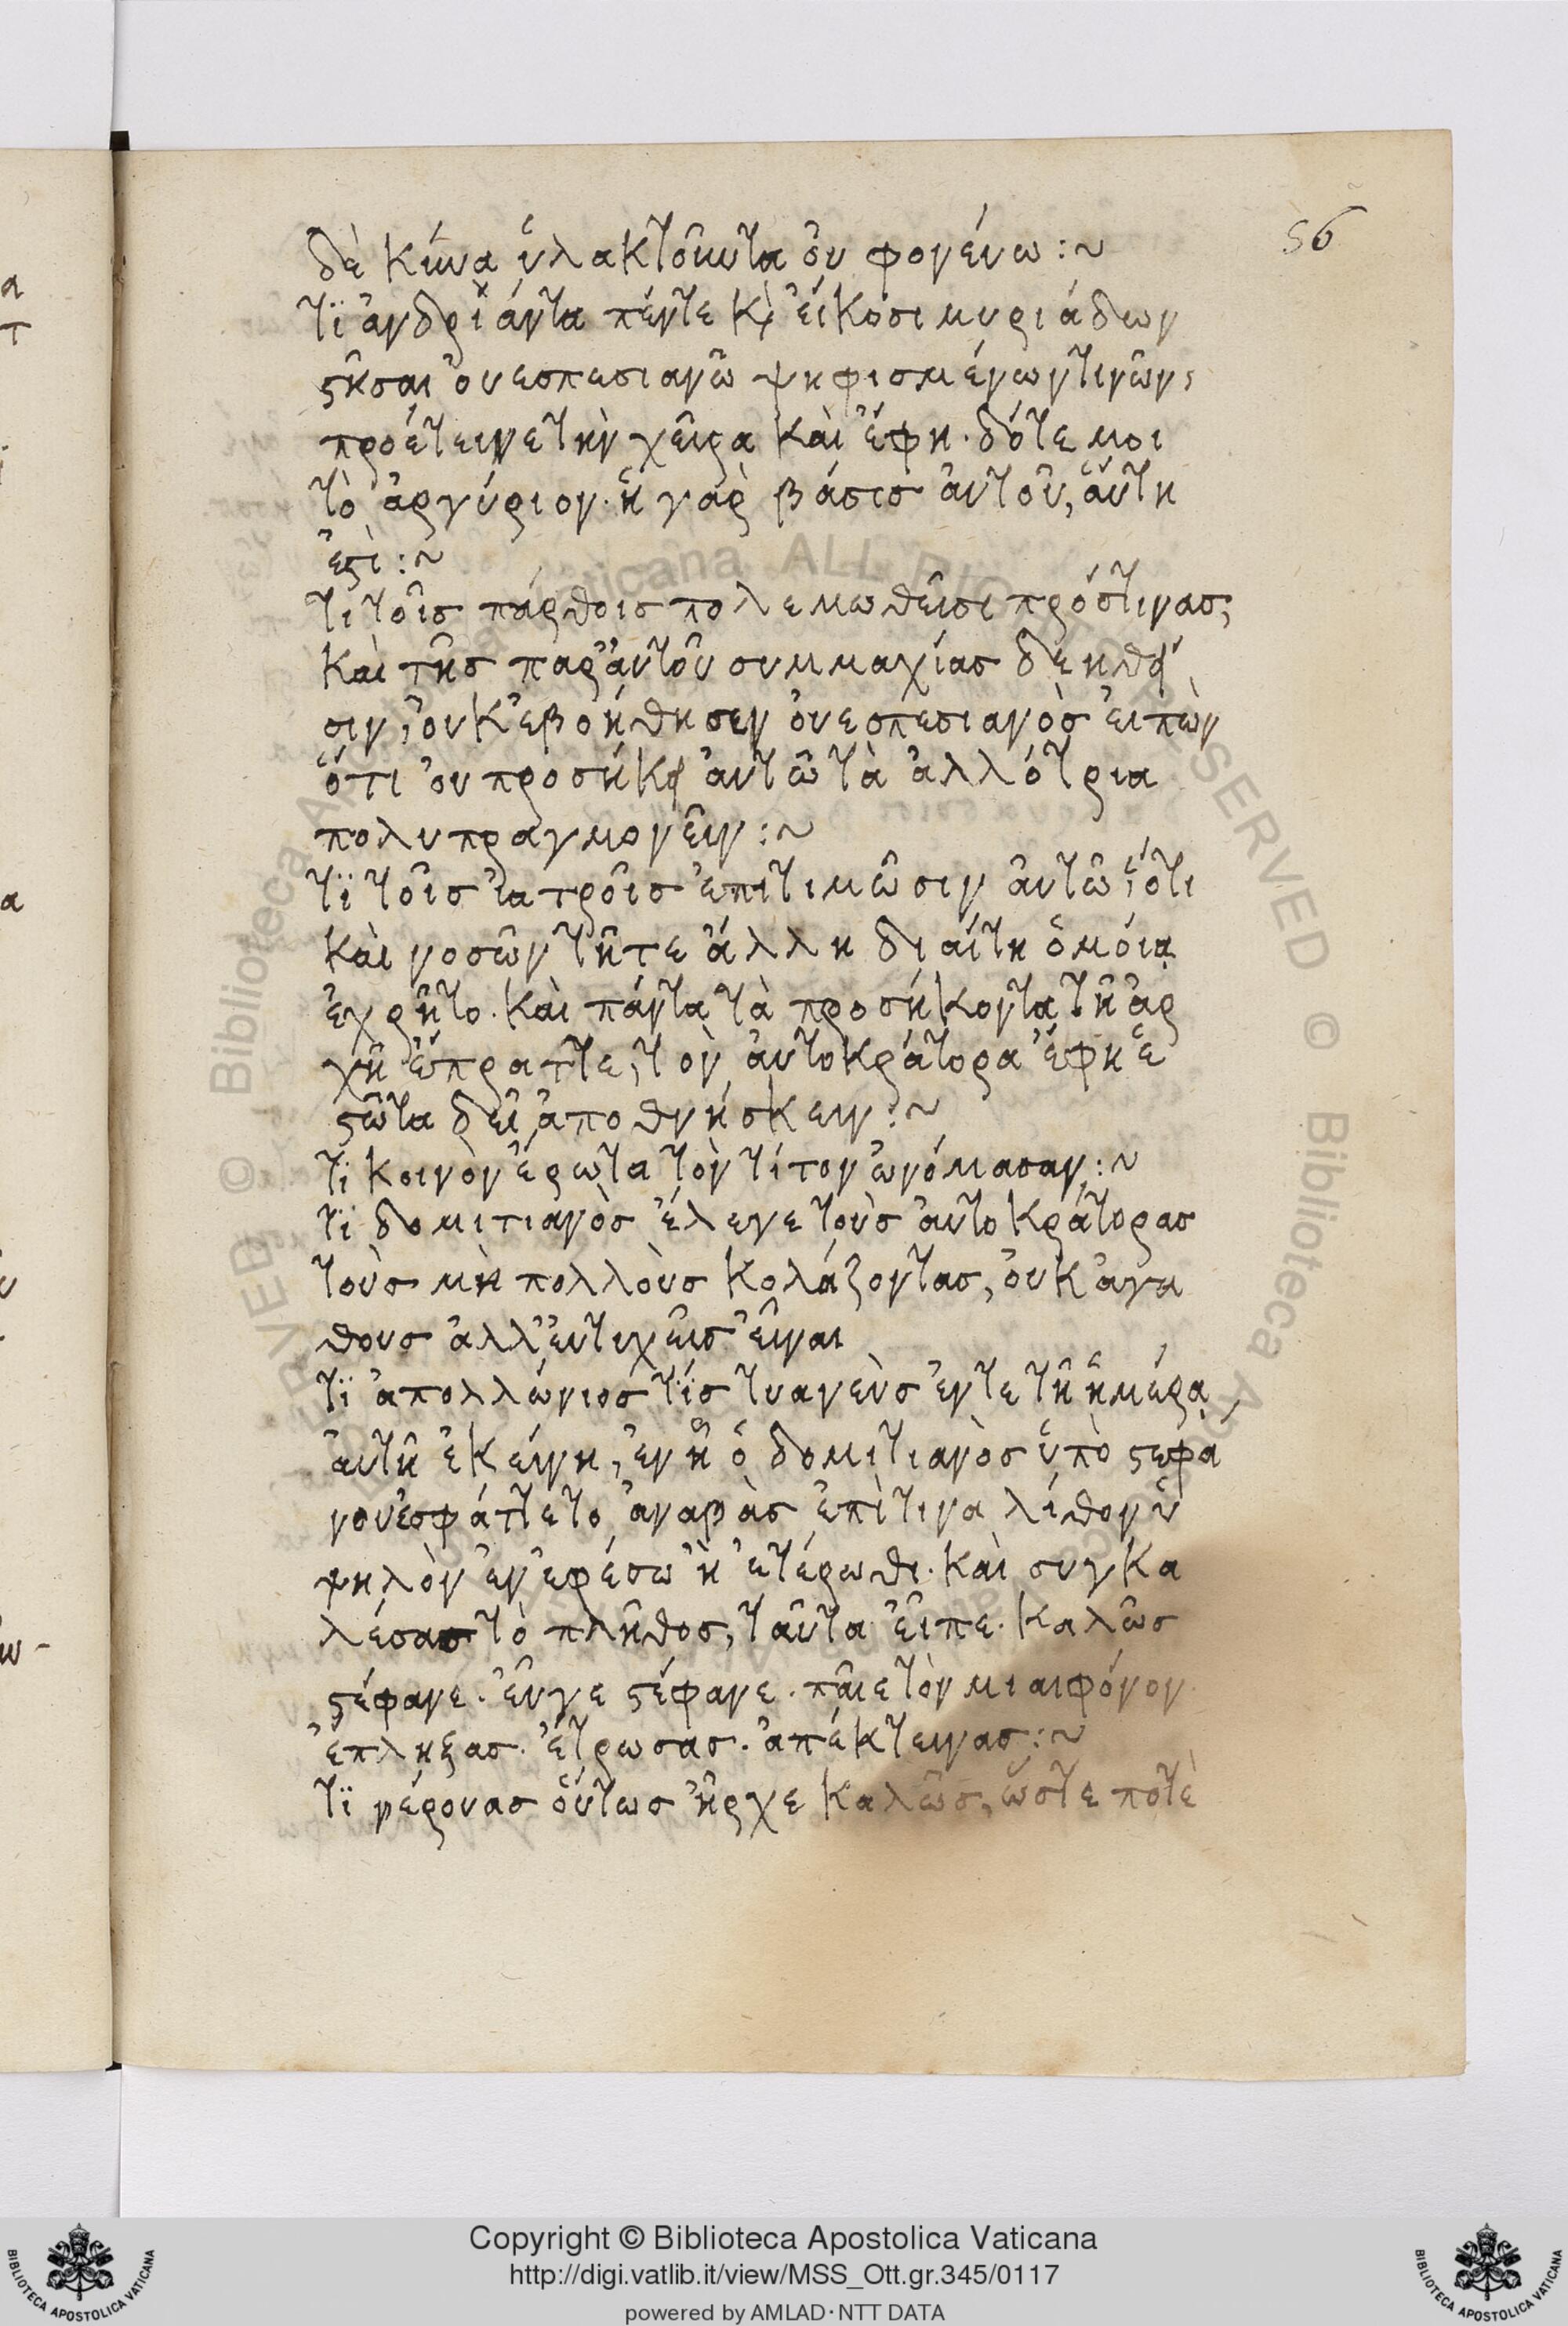 56
δὲ κύνα ὑλακτοῦντα οὐ φονεύω :~
τϊ ἀνδριάντα πέντε κὶ εἴκοσι μυριάδων
στῆσαι οὐεσπεσιανῶ ψηφισμένων τινῶν,
προέτεινε τὴν χεῖρα καὶ ἔφη · δότε μοι
τὸ ἀργύριον · ἡ γὰρ βάσις αὐτοῦ, αὕτη
ἐστὶ :~
τὶ τοῖς πάρθοις πολεμωθεῖσι πρός τινας,
καὶ τῆς παρ' αὐτοῦ συμμαχίας δεηθεῖ
σιν, οὐκ ἐβοήθησεν οὐεσπεσιανὸς εἰπὼν
ὅτι οὐ προσήκει αὐτῶ τὰ ἀλλότρια
πολυπραγμονεῖν :~
τϊ τοῖς ἰατροῖς ἐπιτιμῶσιν αὐτῶ, ὅτι
καὶ νοσῶν τῆ τε ἄλλη διαίτη ὁμοία
ἐχρῆτο · καὶ πάντα τὰ προσήκοντα τῆ ἀρ
χῆ ἔπραττε, τὸν αὐτοκράτορα ἔφη ἑ
στῶτα δεῖ ἀποθνήσκειν :~
τϊ κοινὸν ἔρωτα τὸν τίτον ὠνόμασαν :~
τϊ δομιτιανὸς ἔλεγε τοὺς αὐτοκράτορας
τοὺς μὴ πολλοὺς κολάζοντας, οὐκ ἀγα
θους ἀλλ' εὐτυχεῖς εἶναι
τϊ ἀπολλώνιος τϊς τυανεὺς ἐν τε τῆ ἡμέρα
αὐτῆ ἐκείνη, ἐν ἧ ὁ δομιτιανὸς ὑπὸ στεφά
νου ἐσφάττετο, ἀναβὰς ἐπὶ τινα λίθον ὑ
ψηλὸν ἐν ἐφέσω ἢ ἑτέρωθι · καὶ συγκα
λέσας τὸ πλῆθος, ταῦτα εἶπε · καλῶς
στέφανε · εὖγε στέφανε · παῖε τὸν μιαιφόνον
ἔπληξας · ἔτρωσας · ἀπέκτεινας :~
τϊ νέρουας οὕτως ἦρχε καλῶς, ὥστε ποτὲ
Copyright © Biblioteca Apostolica Vaticana
http://digi.vatlib.it/view/MSS_Ott.gr.345/0117
powered by AMLAD · NTT DATA